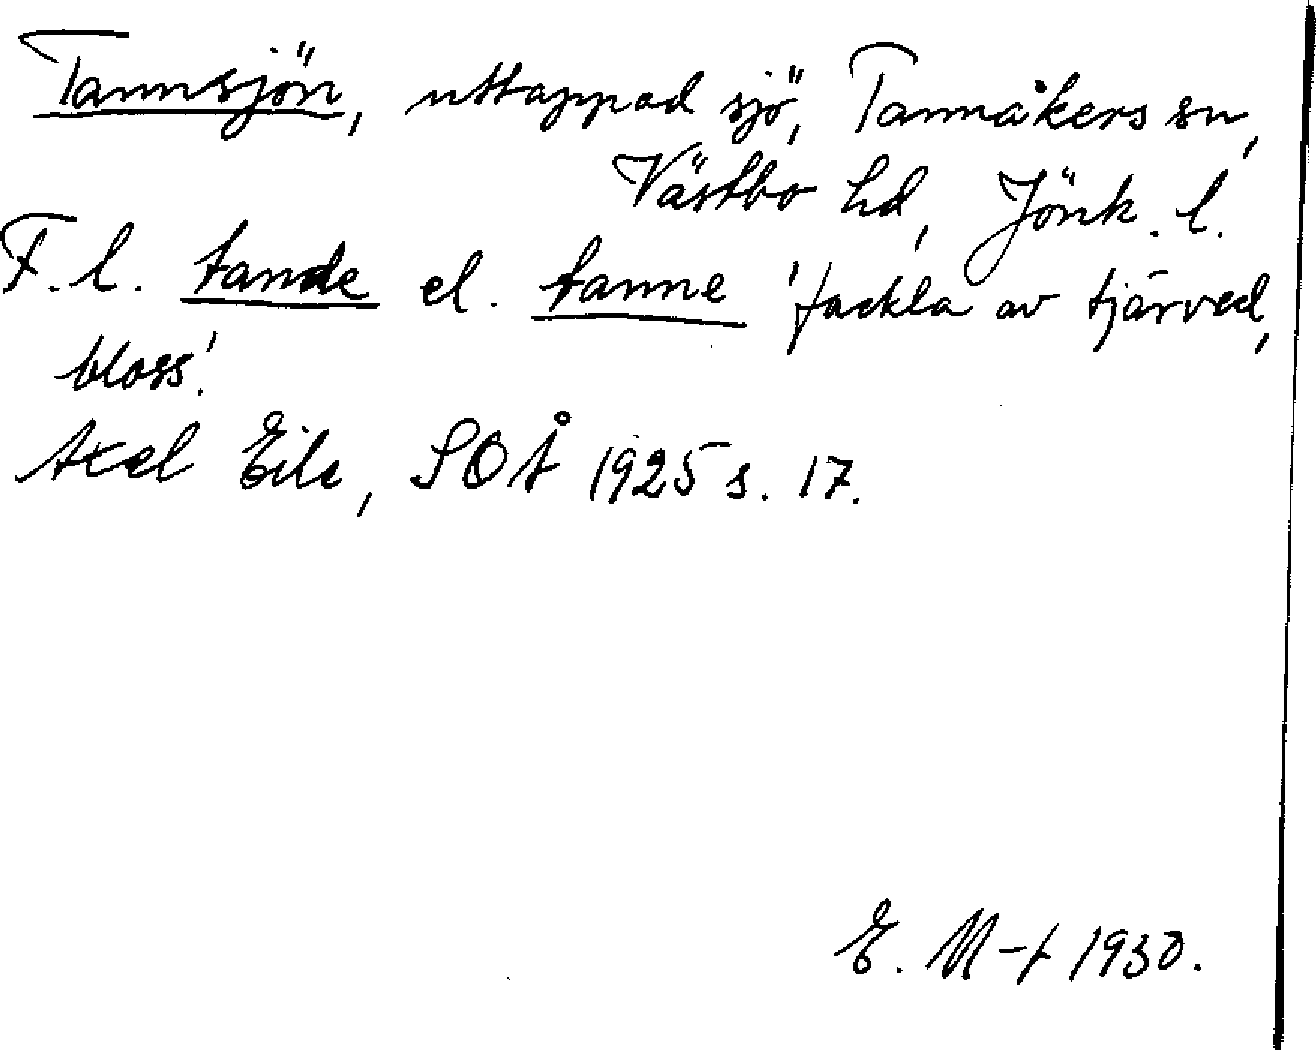 Tannsjön, uttappad sjö, Tannåkers sn,
Västbo hd, Jönk. l.
F. l. tande el. tanne 'fackla av tjärved,
bloss'.
Axel Eile, SOÅ 1925 s. 17.
E. M-t 1930.